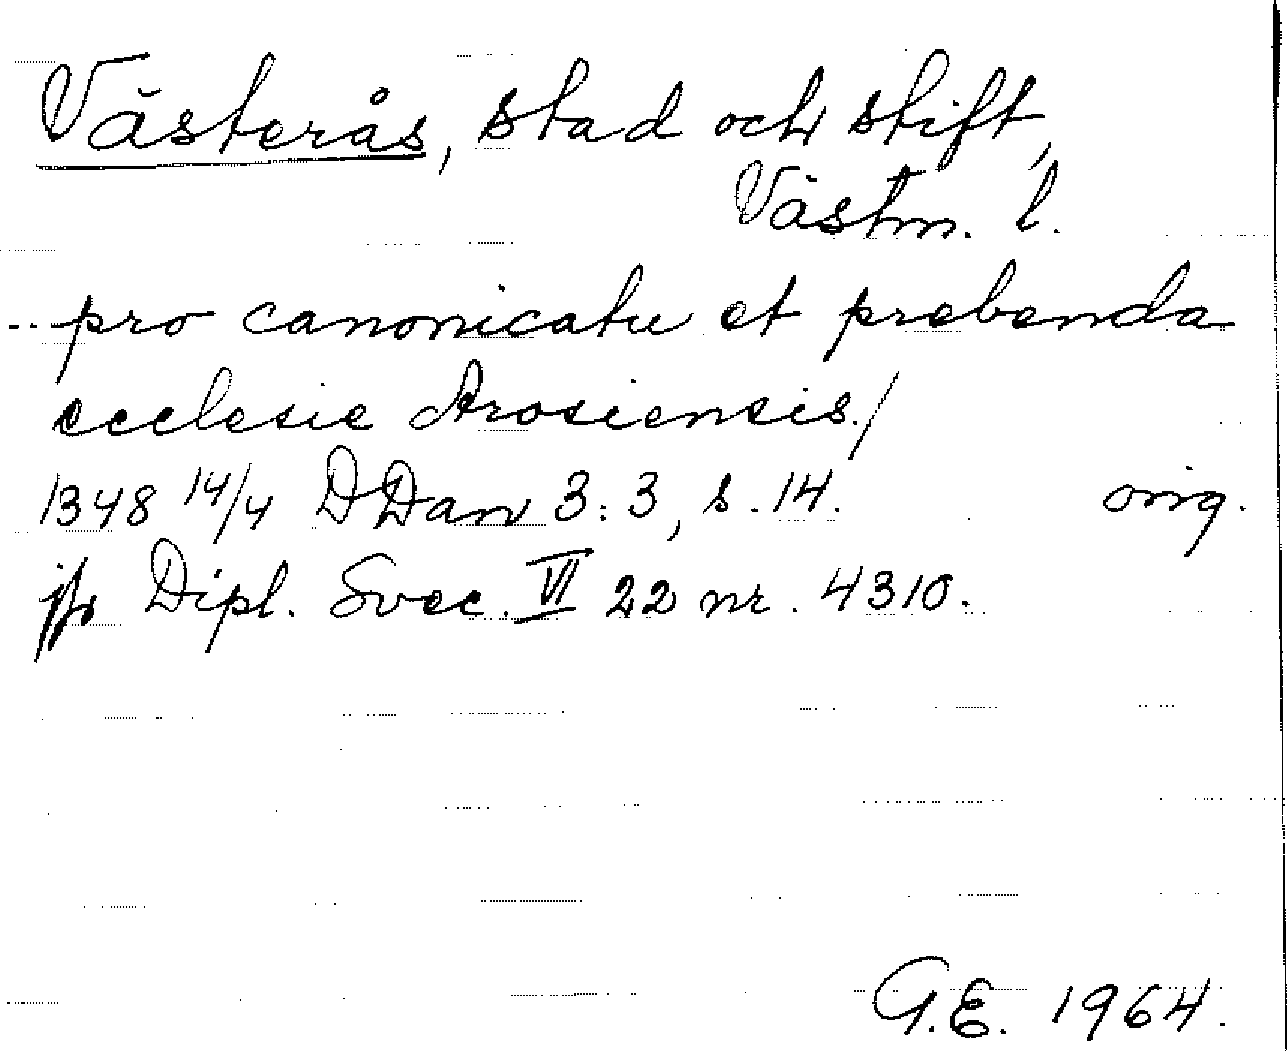 Västerås, stad och stift,
Västm. l.
.. pro canonicatu et prebenda
ecclesie Arosiensis./
1348 14/4 DDan 3:3, s. 14. orig.
jfr Dipl. Svec. VI 22 nr. 4310.
G.E. 1964.